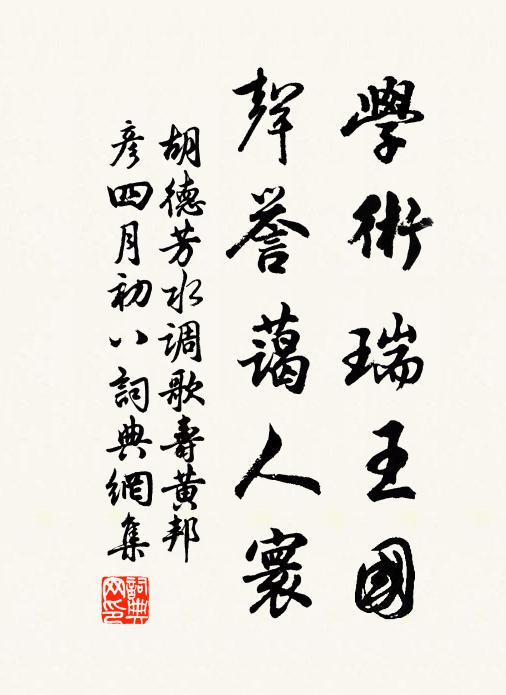 學術瑞王國
聲誉藹人寰
胡德芳水调歌壽黄邦
彦四月初八詞典網集
詞典網印